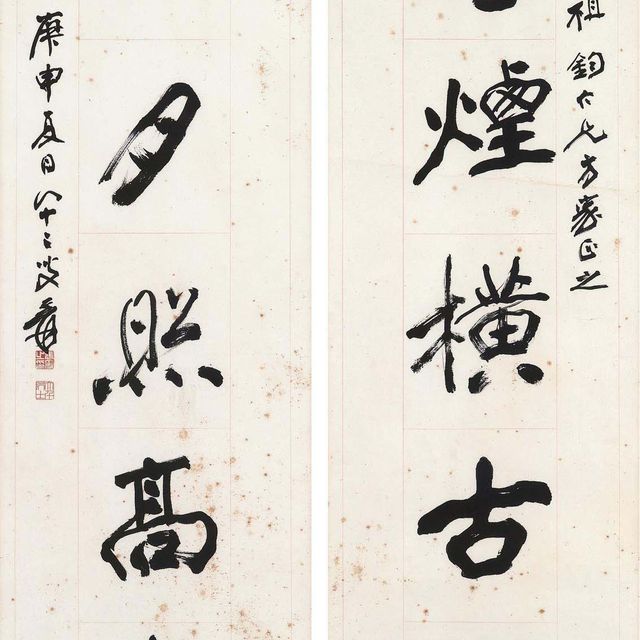 祖鈞仁兄方家正之
煙橫古
夕照高
庚申夏日八十二叟爰